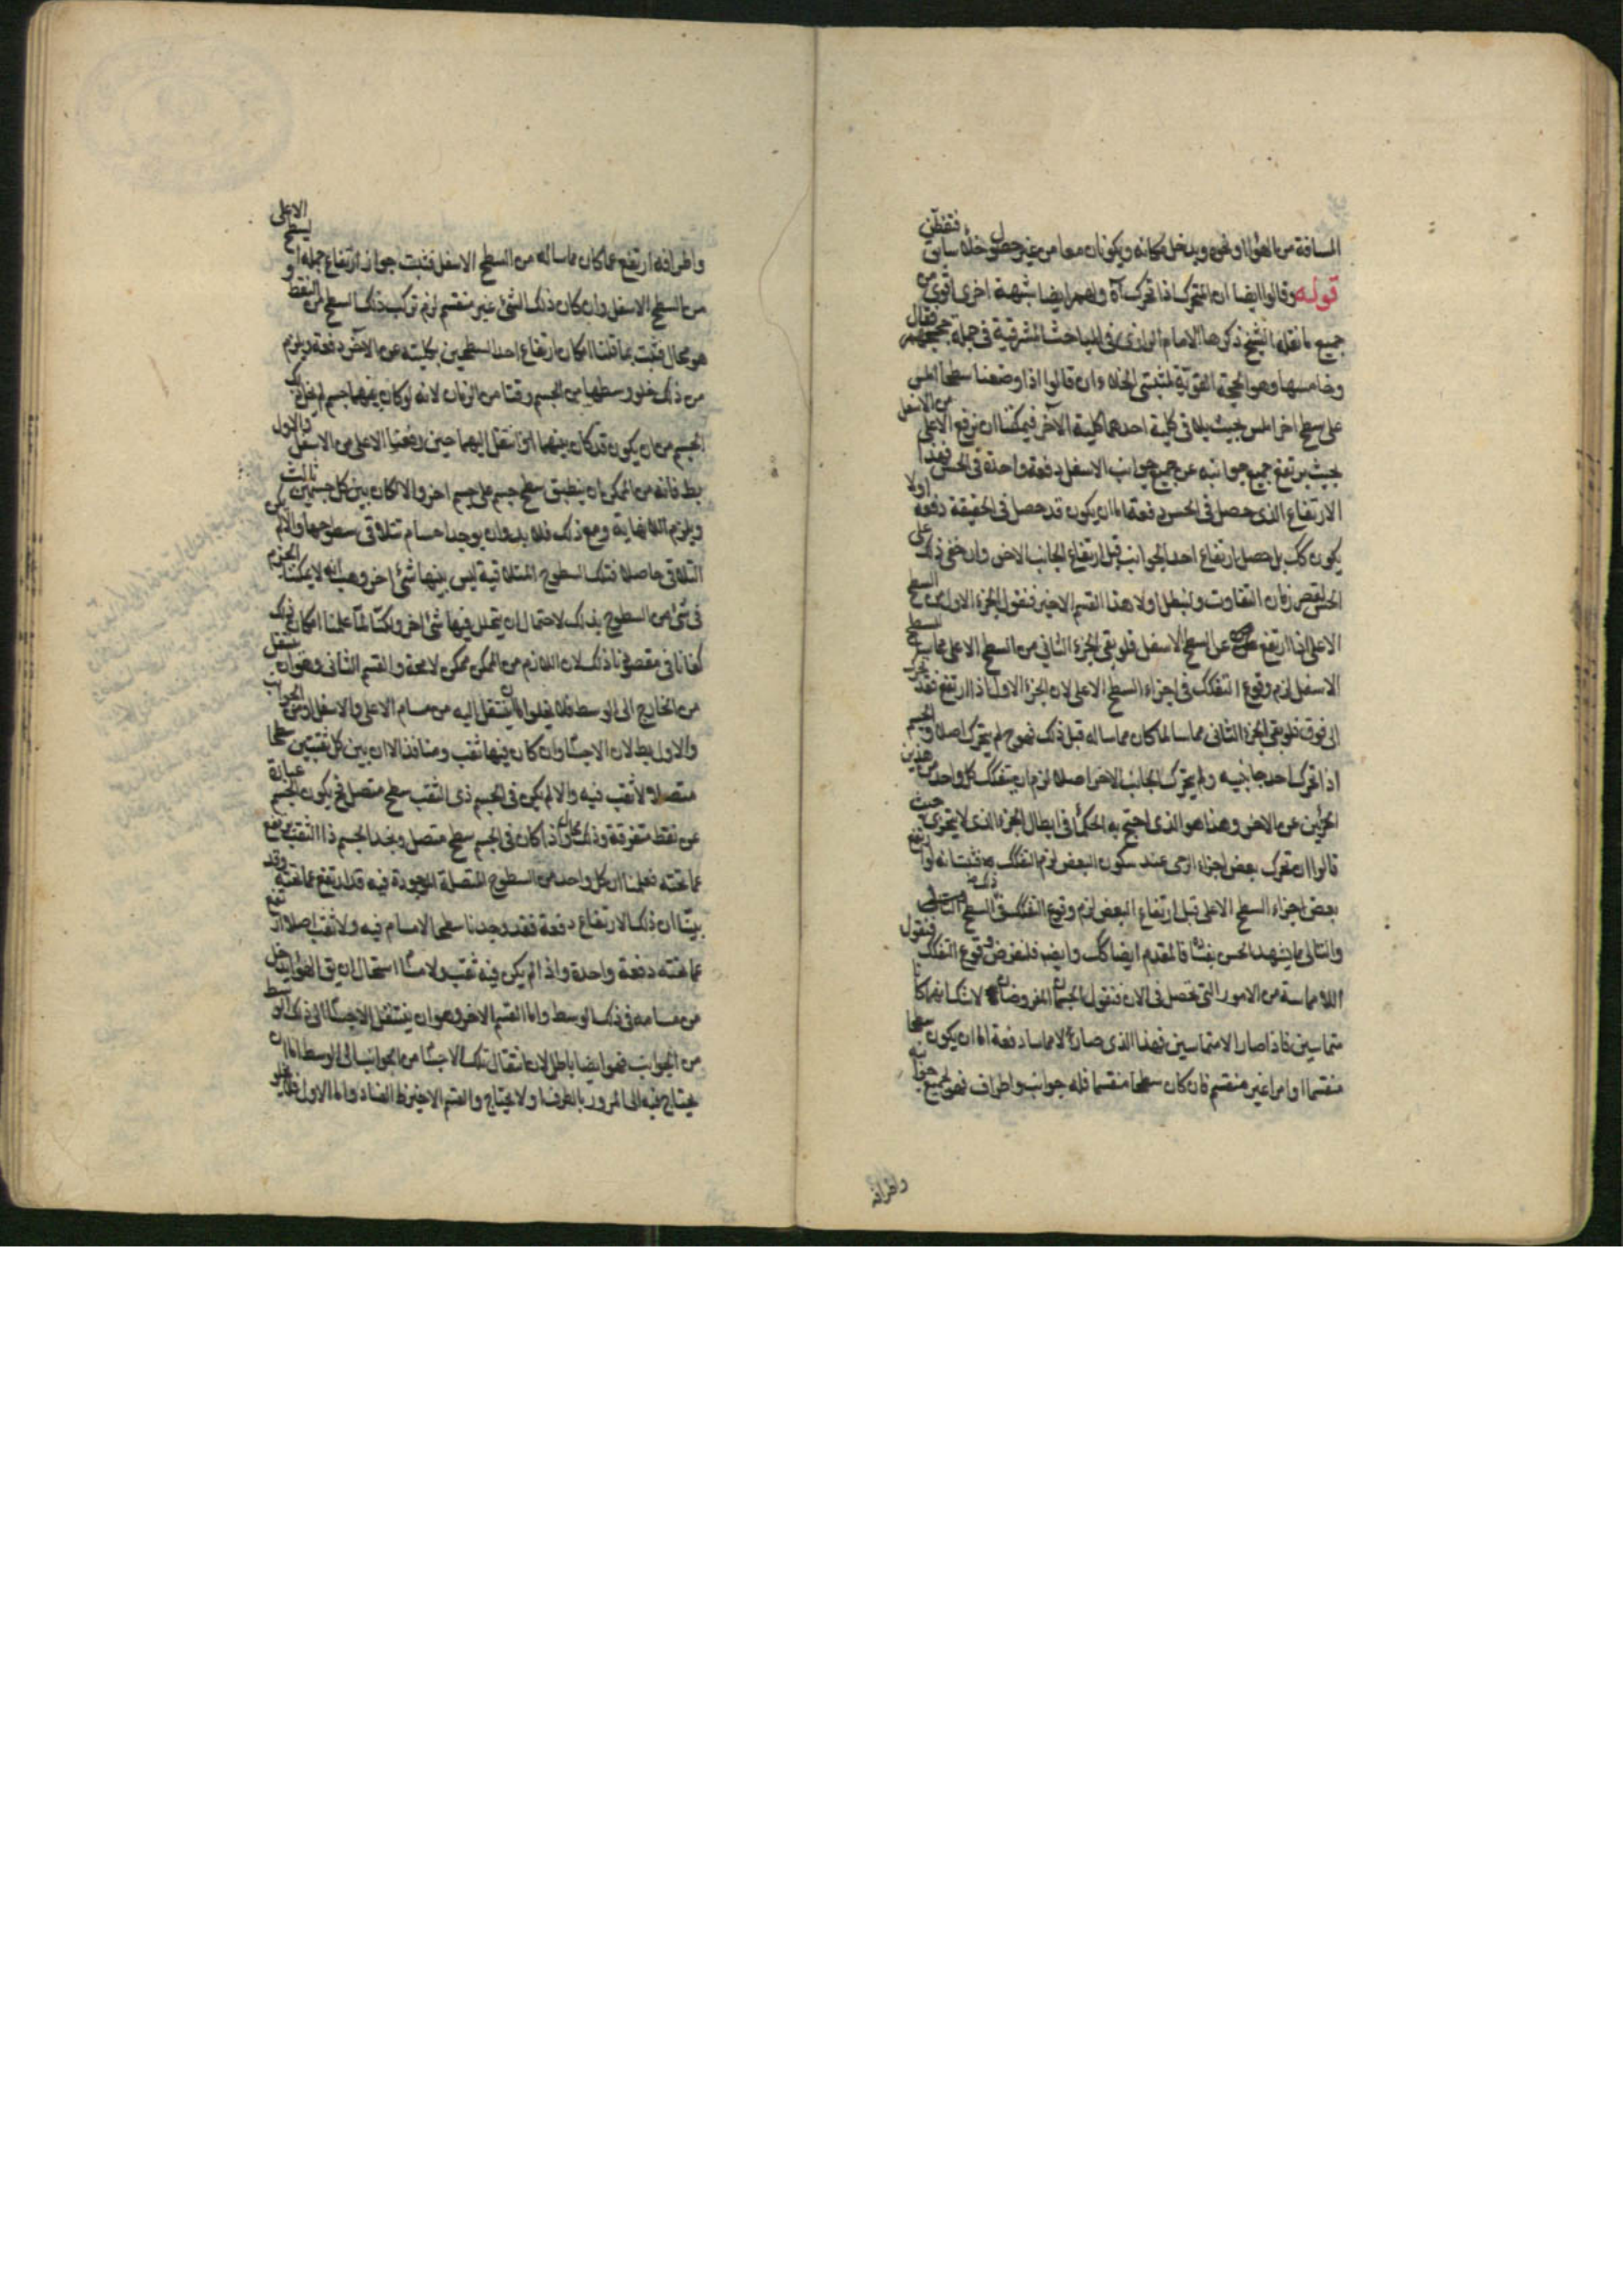 المسافة من الهواء او نحوه ويدخل مكانه ويكونان معا من غير حصول خلاء سابق فتفطن
قوله وقالوا ايضا ان المتحرك اذا تحرك آه ولهم ايضا شبهة اخرى اقوى من
جميع ما نقله الشيخ ذكرها الامام الرازى فى المباحث المشرقية فى جملة حججهم فقال
وخامسها وهو الحجة القوية لمثبتى الخلاء وان قالوا اذا وضعنا سطحا املس
على سطح اخر املس بحيث يلاقى كلية احدهما كلية الآخر فيمكننا ان نرفع الاعلى من الاسفل
بحيث يرتفع جميع جوانبه عن جميع جوانب الاسفل دفعة واحدة فى الحس فهذا
الارتفاع الذى حصل فى الحس دفعة اما ان يكون قد حصل فى الحقيقة دفعة اولا
يكون كك بل حصل ارتفاع احد الجوانب قبل ارتفاع الجانب الاخر وان خفى ذلك على
الحس لقصر زمان التفاوت ولنبطل اولا هذا القسم الاخير فنقول الجزء الاول من السطح
الاعلى اذا ارتفع عن السطح الاسفل فلو بقى الجزء الثانى من السطح الاعلى مماسا للسطح
الاسفل لزم وقوع التفكك فى اجزاء السطح الاعلى لان الجزء الاول اذا ارتفع فقد تحرك
الى فوق فلو بقى الجزء الثانى مماسا لما كان مماسا له قبل ذلك فهو ح لم يتحرك اصلا والجسم
اذا تحرك احد جانبيه ولم يتحرك الجانب الاخر اصلا لزم ان يتفكك كل واحد من هذين
الجزئين عن الاخر وهذا هو الذى احتج به الحكماء فى ابطال الجزء الذى لا يتجزى حيث
قالوا ان تحرك بعض اجزاء الرحى عند سكون البعض لزم التفكك فثبت انه لو ارتفع
بعض اجزاء السطح الاعلى قبل ارتفاع البعض لزم وقوع التفكك فى ذلك السطح
والتالى مما يشهد الحس بفساده فالمقدم ايضا كك وايضا فلنفرض وقوع التفكك فنقول
اللامماسة من الامور التى تحصل فى الان فنقول الجسمان المفروضان لا شك انهما كانا
متماسين فاذا صارا لا متماسين فهذا الذى صار لا مماسا دفعة اما ان يكون سطحا
منقسما او امرا غير منقسم فان كان سطحا منقسما فله جوانب واطراف فهو بجميع جوانبه
واطرافه
واطرافه ارتفع عما كان مماسا له من السطح الاسفل فثبت جواز ارتفاع جملة السطح الاعلى
من السطح الاسفل وان كان ذلك الشئ غير منقسم لزم تركب ذلك السطح من النقط و
هو محال فثبت بما قلنا امكان ارتفاع احد السطحين بكليته عن الاخر دفعة ويلزم
من ذلك خلو وسطها من الجسم وقتا من الزمان لانه لو كان بينهما جسم لم يخل ذلك
الجسم من ان يكون قد كان بينهما او انتقل اليهما حين رفعنا الاعلى من الاسفل والاول
بط فانه من الممكن ان ينطبق سطح جسم على جسم اخر والا لكان بين كل جسمين ثالث
ويلزم اللانهاية ومع ذلك فلا بد وان يوجد اجسام تتلاقى سطوحها والا لم يكن
التلاقى حاصلا فتلك السطوح المتلاقية ليس بينها شئ اخر وهب انه لا يمكننا الجزم
فى شئ من السطوح بذلك لاحتمال ان يتخلل فيها شئ اخر ولكنا لما علمنا امكان ذلك
كفانا فى مقصودنا ذلك لان اللازم من الممكن ممكن لا محة والقسم الثانى وهو ان ينتقل
من الخارج الى الوسط فلا يخلو اما ان ينتقل اليه من مسام الاعلى والاسفل او من الجوانب
والاول بط لان الاجسام وان كان فيها ثقب ومنافذ الا ان بين كل ثقبتين سطحا
متصلا ولا ثقب فيه والا لم يكن فى الجسم ذى الثقب سطح متصل فح يكون الجسم عبارة
عن نقط متفرقة وذلك محال واذا كان فى الجسم سطح متصل ونجد الجسم ذا الثقب يرتفع
عما تحته فعلمنا ان كل واحد من السطوح المتصلة الموجودة فيه قد ارتفع عما تحته وقد
بينا ان ذلك الارتفاع دفعة فقد وجدنا سطحا لا مسام فيه ولا ثقب اصلا ارتفع
عما تحته دفعة واحدة واذا لم يكن فيه ثقب ولا مسام استحال ان يق الهواء يدخل
من مسامه فى ذلك الوسط واما القسم الاخر وهو ان ينتقل الاجسام الى ذلك الوسط
من الجوانب فهو ايضا باطل لان انتقال تلك الاجسام من الجوانب الى الوسط اما ان
يحتاج فيه الى المرور بالطرف او لا يحتاج والقسم الاخير ظ الفساد واما الاول فلا يخلو